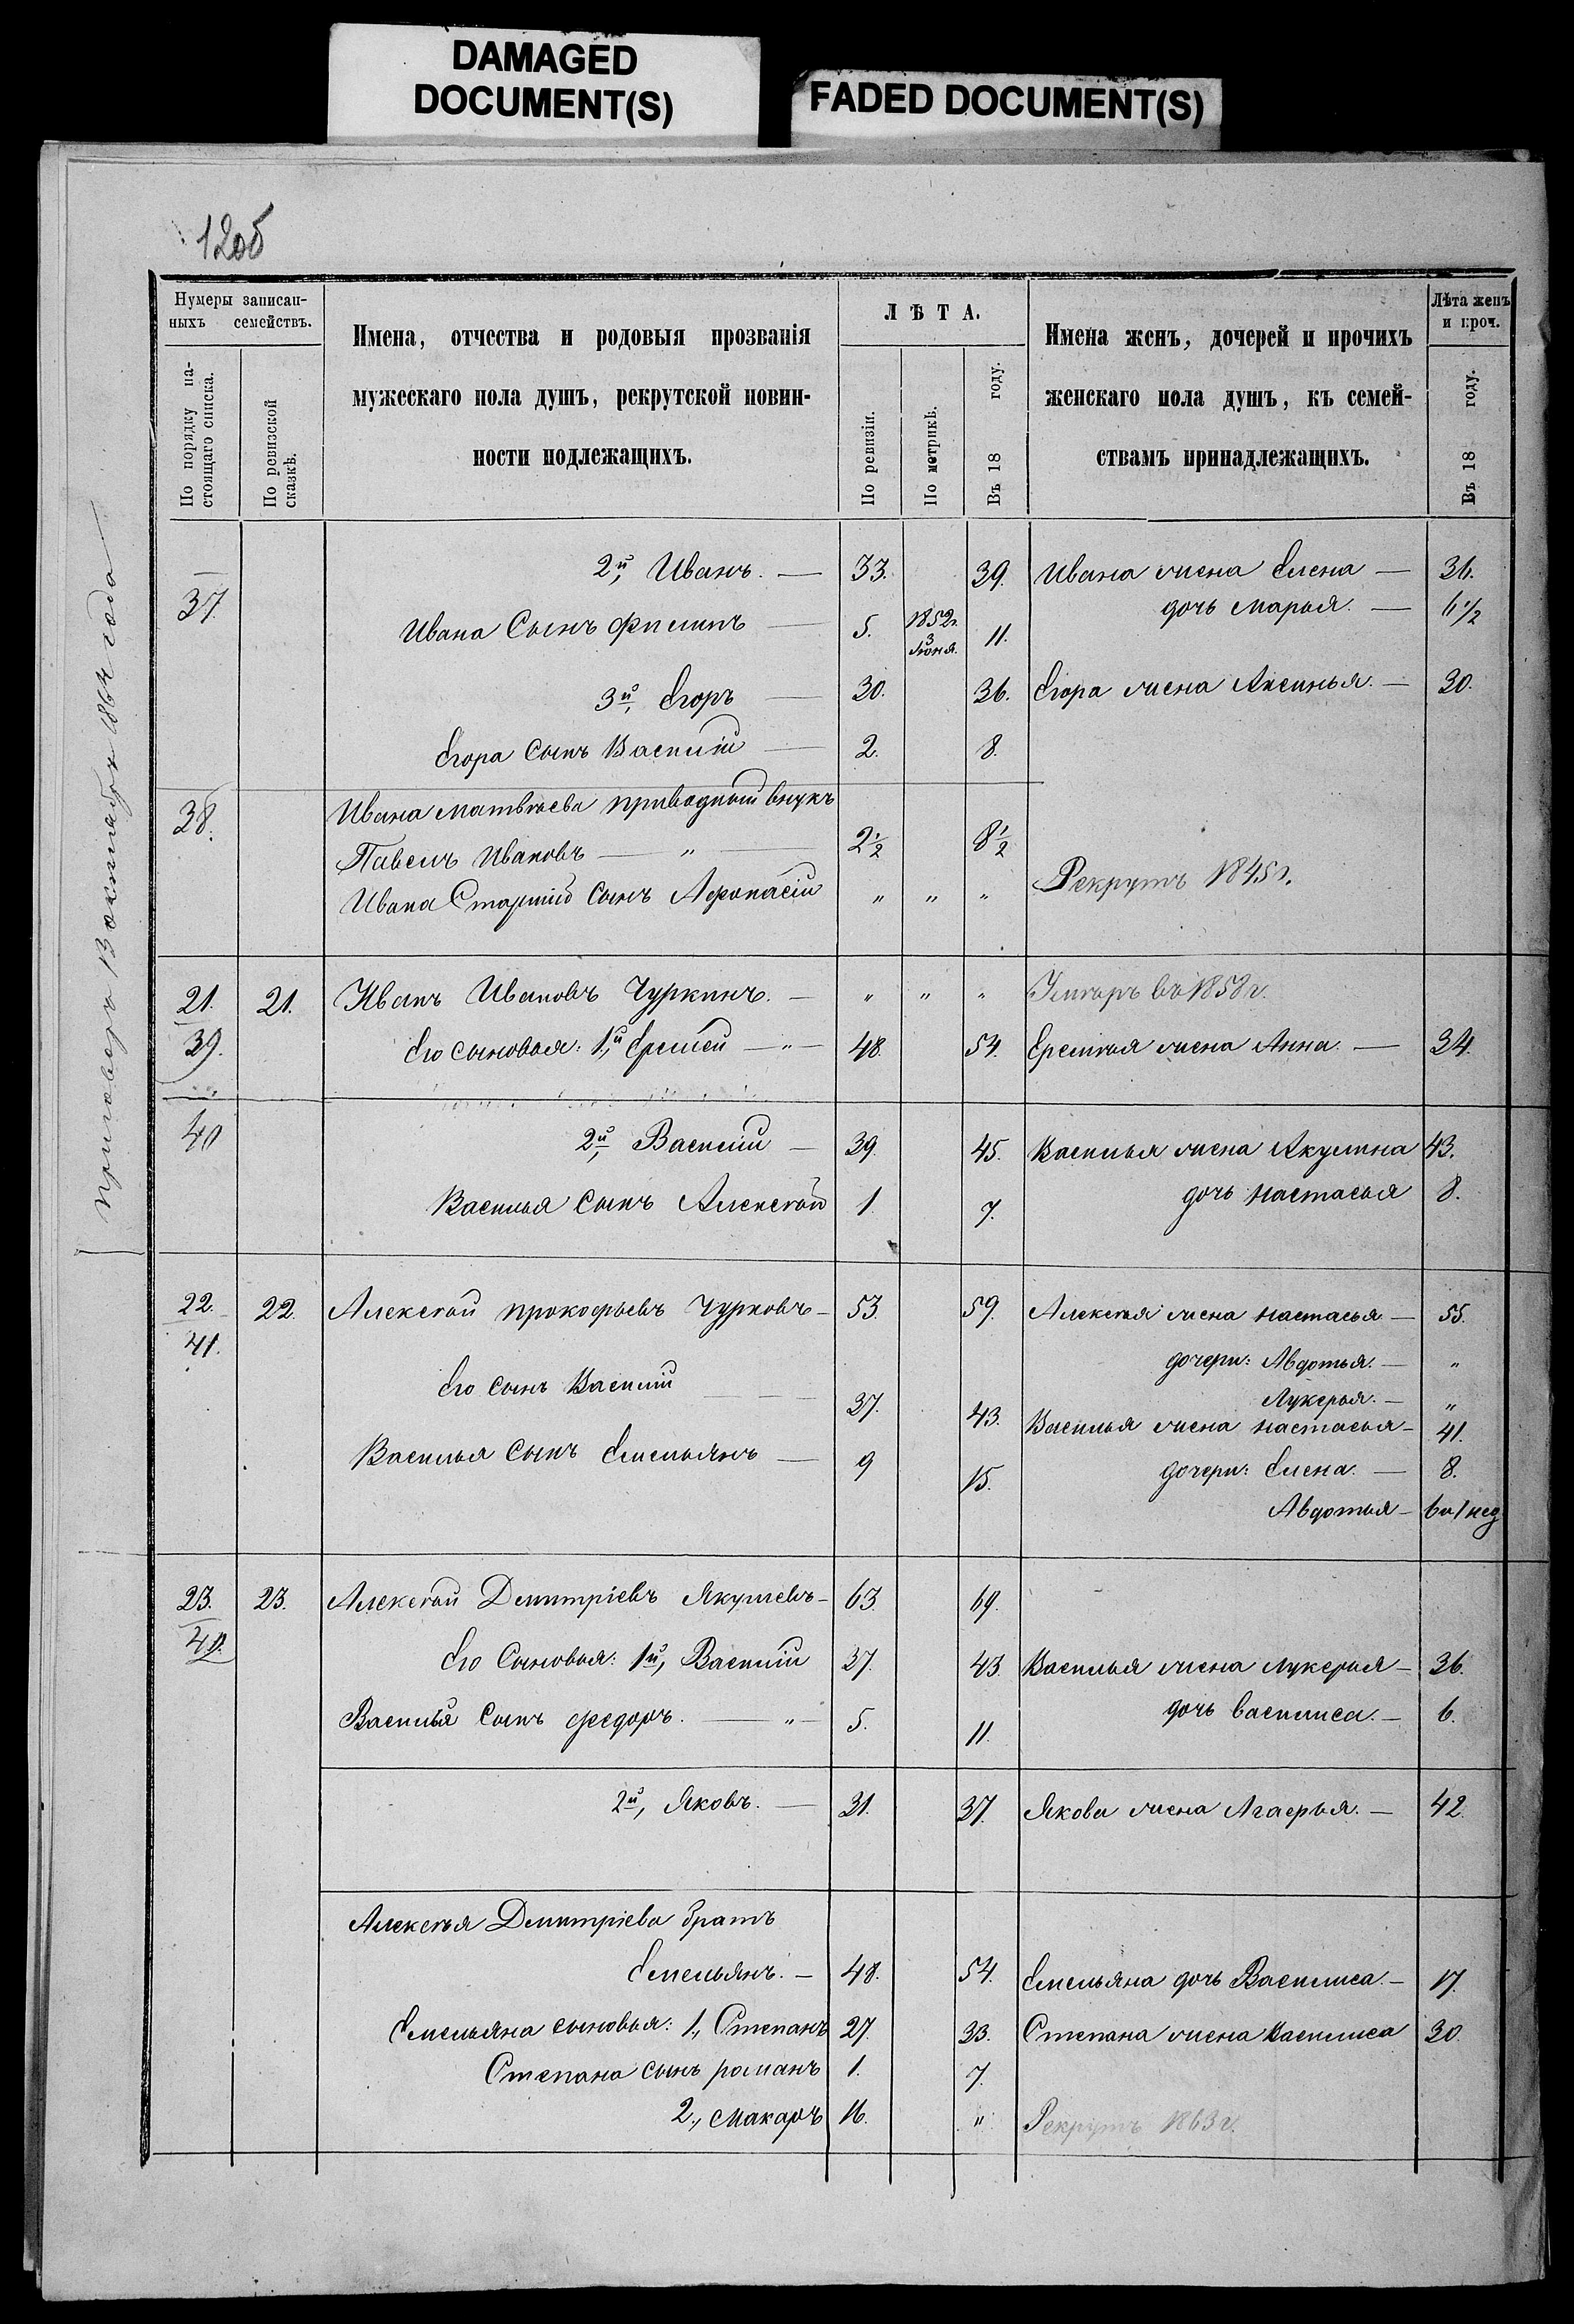 DAMAGED
DOCUMENT(S)
FADED DOCUMENT(S)
120б
Нумеры записан-
ныхъ семействъ.
По порядку на-
стоящаго списка.
По ревизской
сказкѣ.
Имена, отчества и родовыя прозванія
мужескаго пола душъ, рекрутской повин-
ности подлежащихъ.
ЛѢТА.
По ревизіи.
По метрикѣ.
Въ 18 году.
Имена женъ, дочерей и прочихъ
женскаго пола душъ, къ семей-
ствамъ принадлежащихъ.
Лѣта женъ
и проч.
Въ 18 году.
1864 года
37. 2й, Иванъ. — 33. 39. Ивана жена Елена — 36.
дочь Марья. — 6 1/2
Ивана Сынъ Филипъ — 5. 1852г. 3 Іюня. 11.
3й, Егоръ — 30. 36. Егора жена Аксинья. — 30.
Егора Сынъ Василій — 2. 8.
38. Ивана Матвѣева приводный внукъ
Павелъ Ивановъ — " — 2 1/2 8 1/2
Ивана Старшій Сынъ Афонасій " " " Рекрутъ 1845г.
21. 21. Иванъ Ивановъ Чуркинъ. — " " " Умеръ въ 1858г.
39. Его сыновья: 1й, Еремей — " — 48. 54. Еремѣя жена Анна. — 34.
40 2й, Василій — 39. 45. Василья жена Акулина 43.
Василья Сынъ Алексѣй 1. 7. дочь Настасья 8.
22. 22. Алексѣй Прокофьевъ Чурковъ — 53. 59. Алексѣя жена Настасья — 55.
41.
дочери: Авдотья. — "
Его сынъ Василій — 37. 43.
Лукерья. — "
Василья жена Настасья — 41.
Василья Сынъ Емельянъ — 9 15. дочери: Елена. — 8.
Авдотья — 6и1нед
23. 23. Алексѣй Дмитріевъ Якушевъ — 63. 69.
42. Его Сыновья: 1й, Василій 37. 43. Василья жена Лукерья — 36.
Василья Сынъ Федоръ. — " — 5. 11. дочь Василиса. — 6.
2й, Яковъ. — 31. 37. Якова жена Агафья. — 42.
Алексѣя Дмитріева братъ
Емельянъ. — 48. 54. Емельяна дочь Василиса. — 17.
Емельяна сыновья: 1, Степанъ 27. 33. Степана жена Василиса 30.
Степана сынъ Романъ 1. 7.
2, Макаръ 16. " Рекрутъ 1863г.